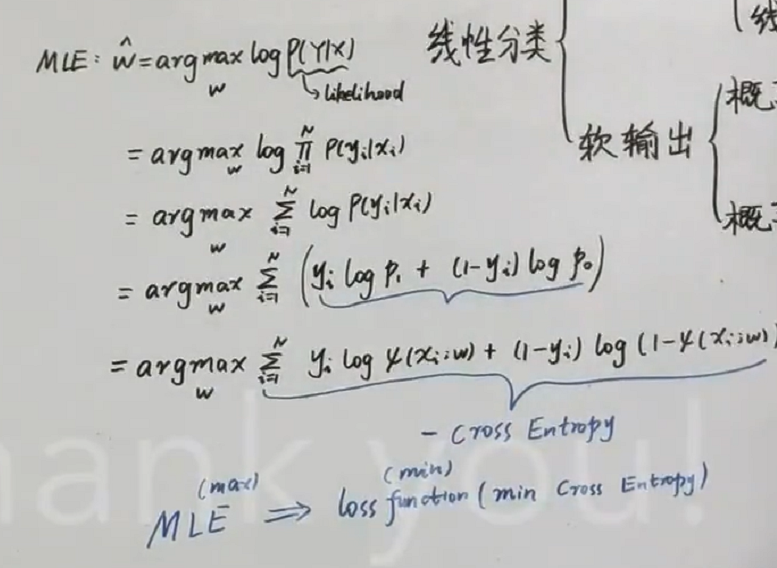 MLE: ŵ = argmax_w log P(Y|X)
↳ likelihood
= argmax_w log ∏_{i=1}^{N} P(y_i|x_i)
= argmax_w ∑_{i=1}^{N} log P(y_i|x_i)
= argmax_w ∑_{i=1}^{N} (y_i log p_1 + (1-y_i) log p_0)
= argmax_w ∑_{i=1}^{N} y_i log ψ(x_i;w) + (1-y_i) log (1-ψ(x_i;w))
- Cross Entropy
(max) (min)
MLE ⇒ loss function (min Cross Entropy)
线性分类
软输出
概
概
hank you!